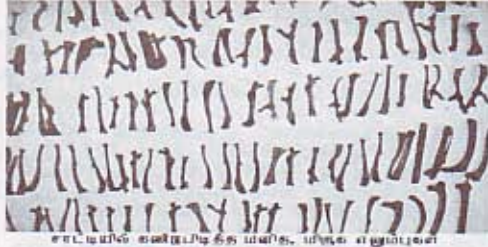 சாட்டியில் கண்டுபிடித்த மனித, மிருக எலும்புகள்